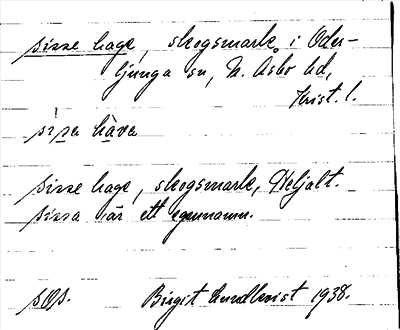 sisse hage, skogsmark i Oder-
ljunga sn, N. Åsbo hd,
Krist. l.
sisa hava
sisse hage, skogsmark, Heljalt.
sissa är ett egennamn.
Birgit Lundkvist 1938.